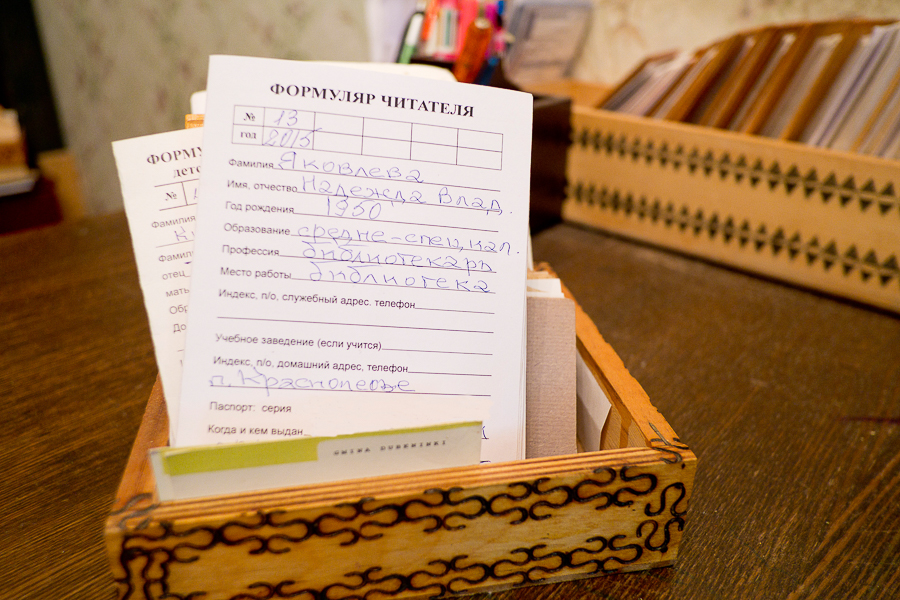 ФОРМУЛЯР ЧИТАТЕЛЯ
№ 13
год 2015
Фамилия Яковлева
Имя, отчество Надежда Влад.
Год рождения 1950
Образование средне-спец, кал.
Профессия библиотекарь
Место работы библиотека
Индекс, п/о, служебный адрес. телефон
Учебное заведение (если учится)
Индекс, п/о, домашний адрес, телефон
п. Краснолесье
Паспорт: серия
Когда и кем выдан
ФОРМУ
дето
№
Фамилия
Фами
отец
мать
Обр
До
GMINA DUBENINKI